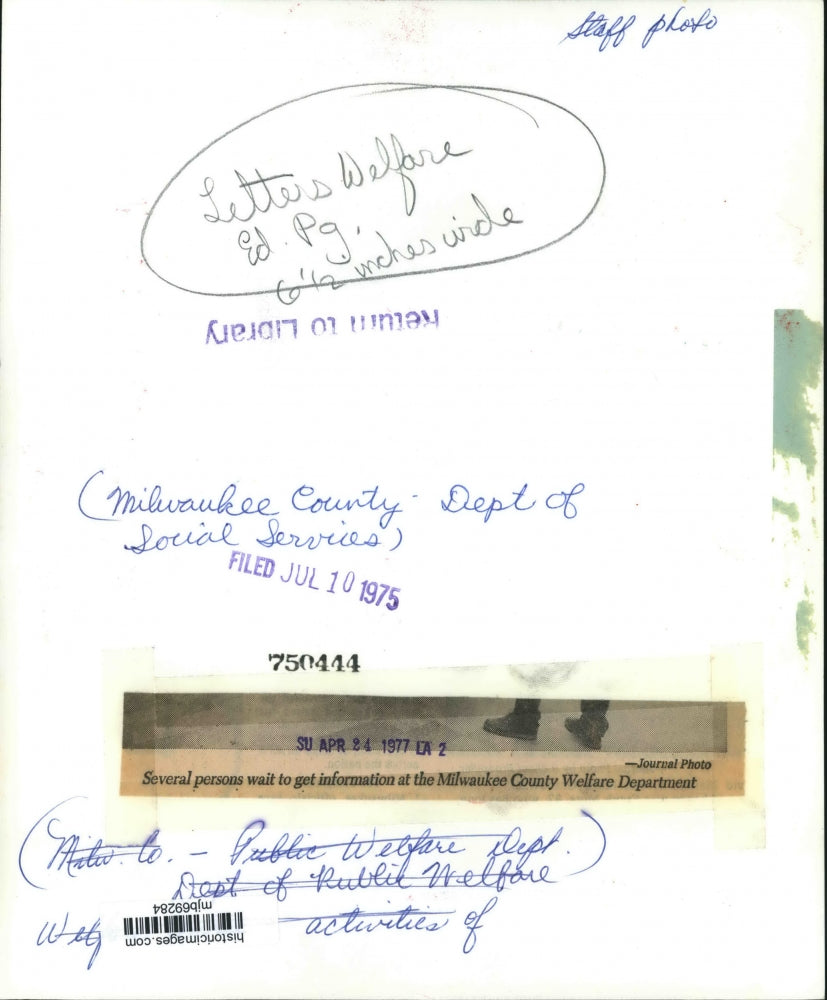 Staff photo
Letters Welfare
Ed. Pg.
6 1/2 inches wide
Return to Library
(Milwaukee County - Dept of
Social Services)
FILED JUL 10 1975
750444
SU APR 24 1977 LA 2
—Journal Photo
Several persons wait to get information at the Milwaukee County Welfare Department
(Milw. Co. - Public Welfare Dept.)
Dept of Public Welfare
activities of
mjb69284
historicimages.com